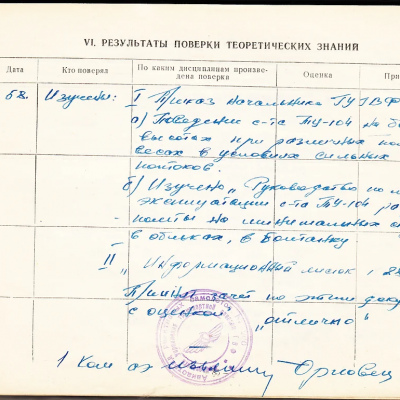 VI. РЕЗУЛЬТАТЫ ПОВЕРКИ ТЕОРЕТИЧЕСКИХ ЗНАНИЙ
Дата Кто поверял По каким дисциплинам произведена поверка Оценка При
58. Изучены: I Приказ начальника ГУГВФ
а) Поведение с-та ТУ-104 на бо
высотах при различных пол
весах в условиях сильных
потоков.
б) Изучено „Руководство по л
эксплуатации с-та ТУ-104, ра
полеты на минимальных ск
в облаках, в болтанку.
II „Информационный листок,
Принят зачёт по этим доку
с оценкой „отлично"
1 Ком аэ